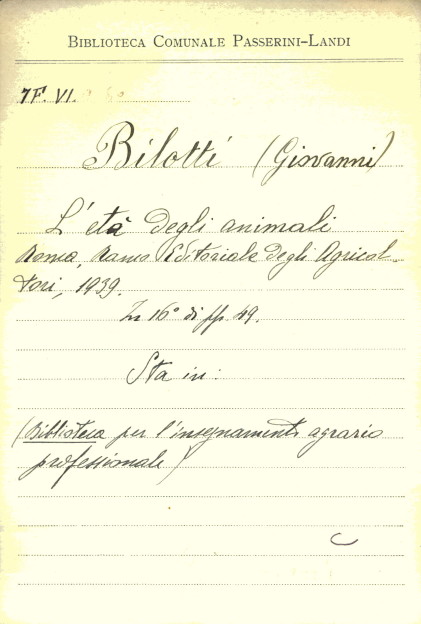 BIBLIOTECA COMUNALE PASSERINI-LANDI
7F. VI.
Bilotti (Giovanni)
L'età degli animali
Roma, Ramo Editoriale degli Agricol-
tori, 1939.
In 16° di pp. 49.
Sta in:
(Biblioteca per l'insegnamento agrario
professionale)
C